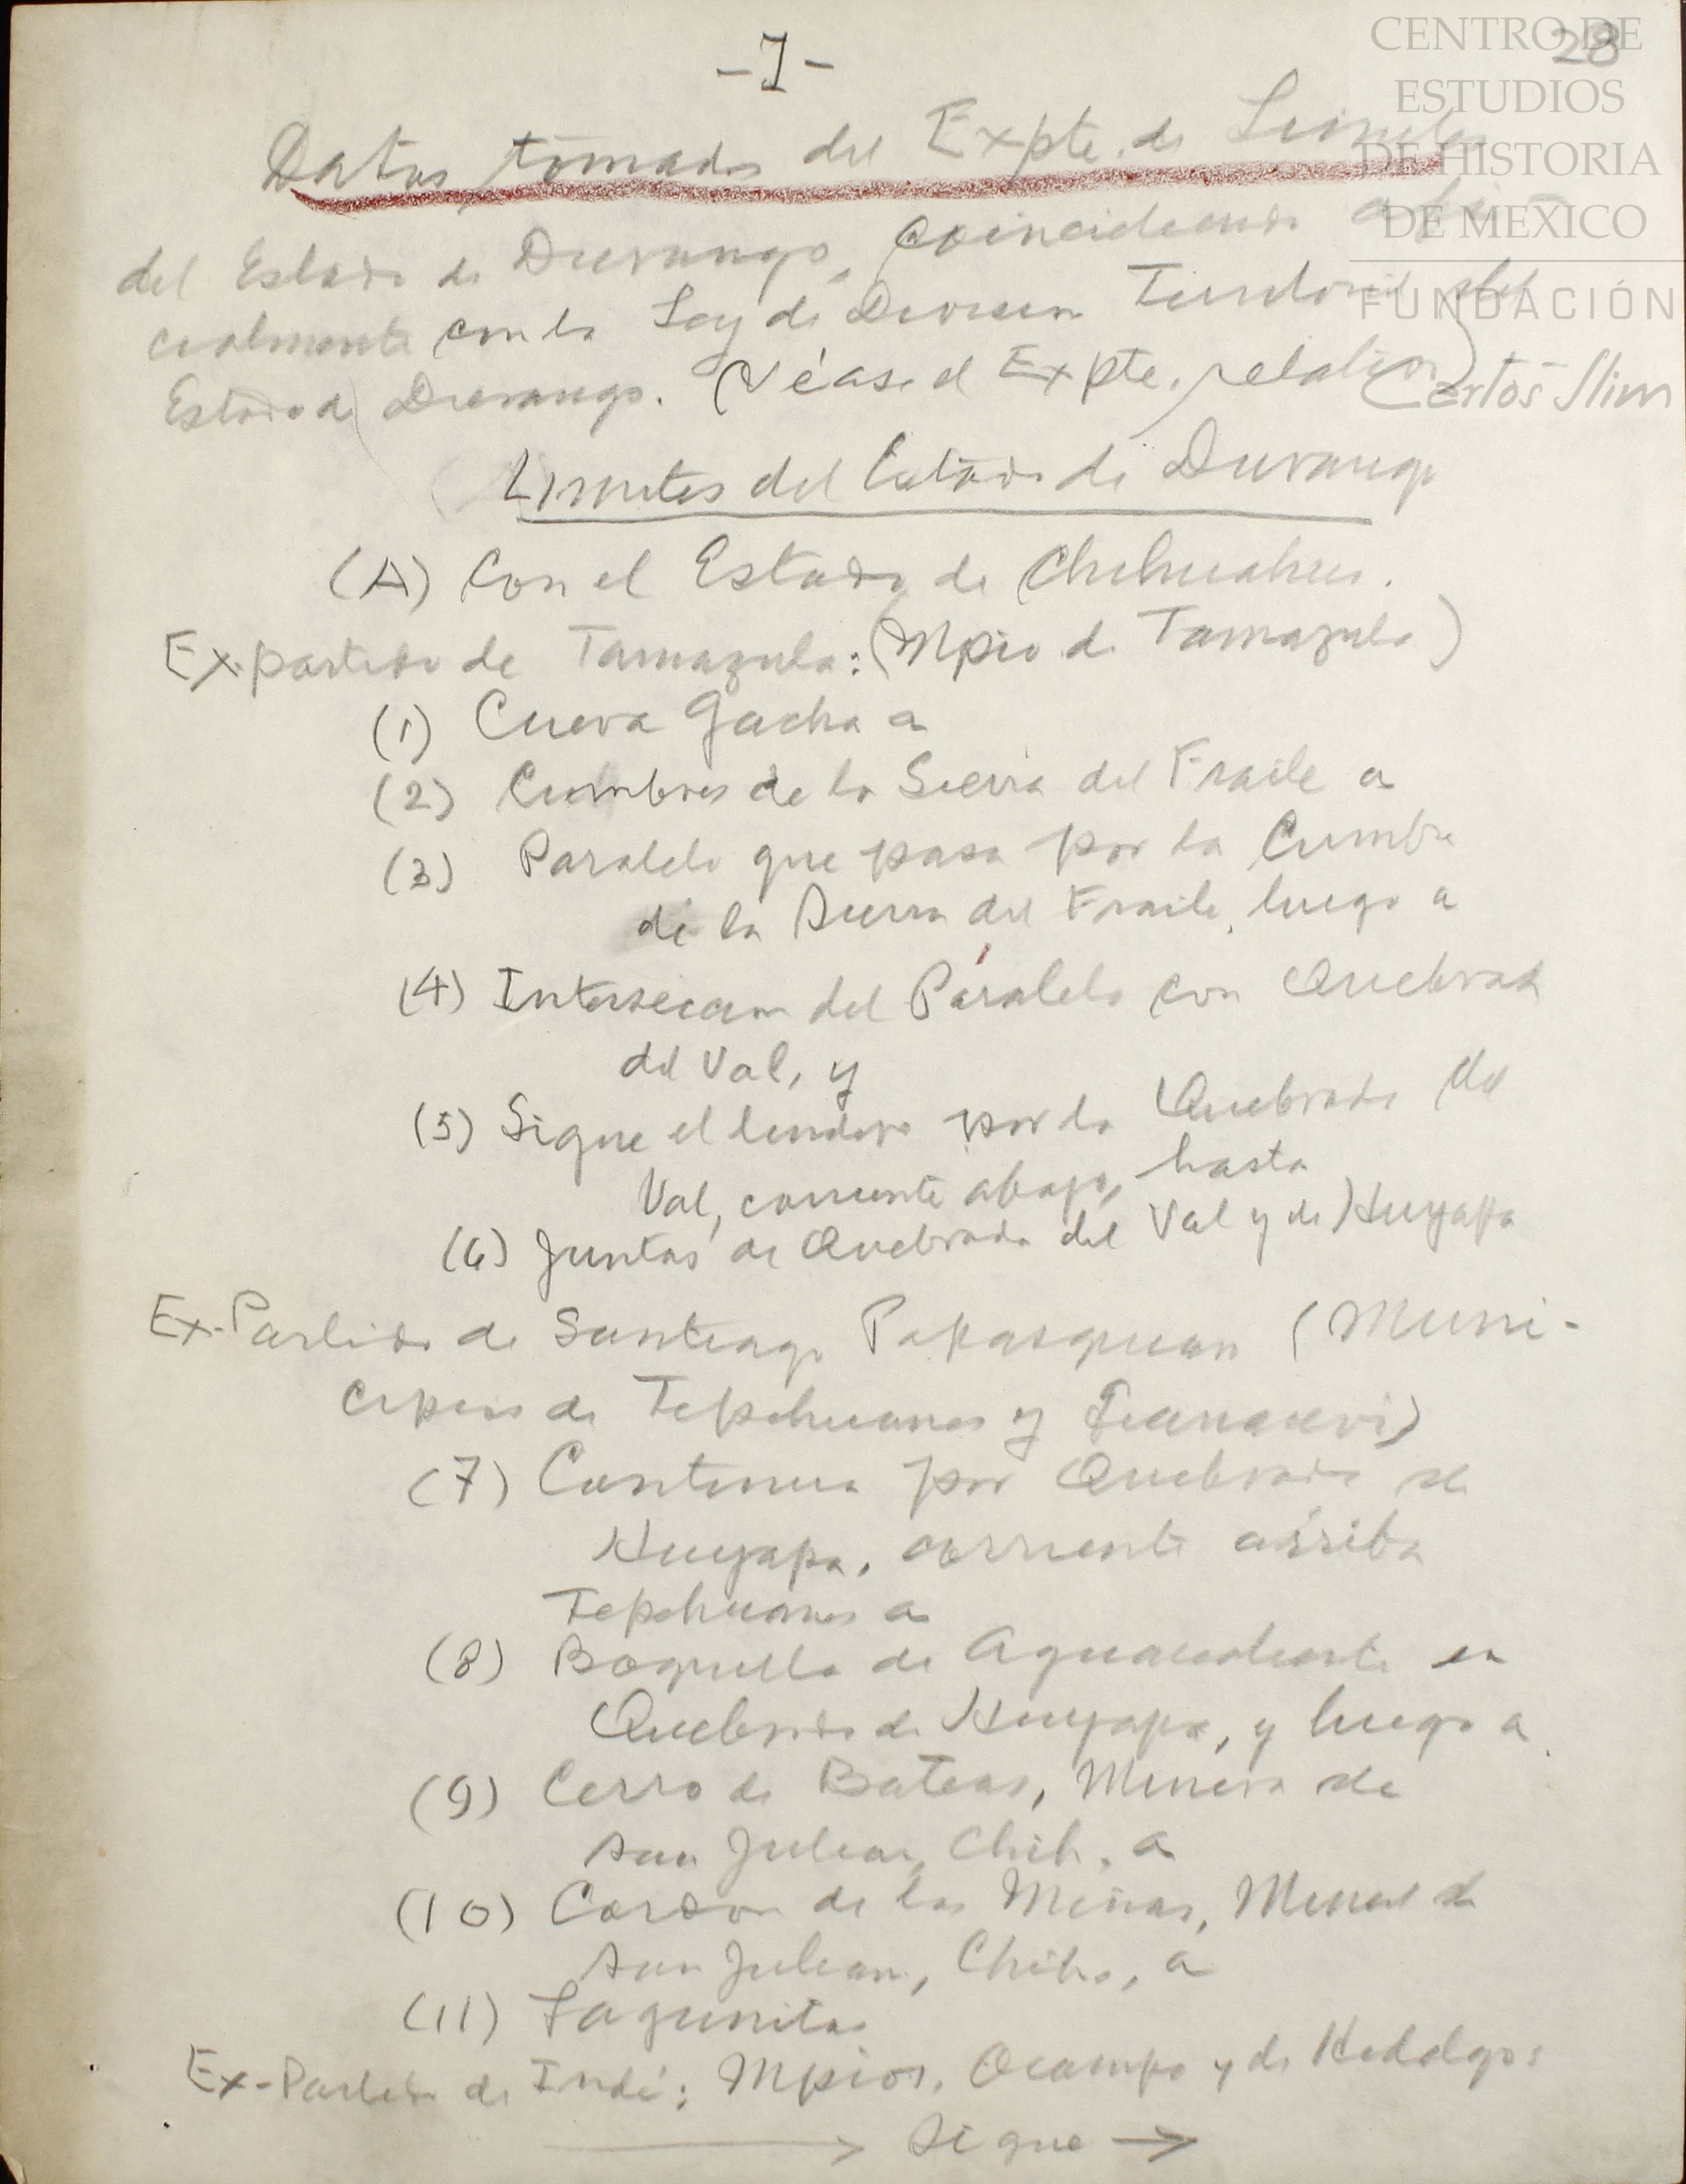 -1-
28
CENTRO DE
ESTUDIOS
DE HISTORIA
DE MEXICO
FUNDACIÓN
Carlos Slim
Datos tomados del Expte. de Limites
del Estado de Durango, coincidiendo ofi-
cialmente con la Ley de Division Territorial del
Estado de Durango. (Véase el Expte. relativo)
Limites del Estado de Durango
(A) Con el Estado de Chihuahua.
Ex-partido de Tamazula: (Mpio de Tamazula)
(1) Cueva Gacha a
(2) Cumbres de la Sierra del Fraile a
(3) Paralelo que pasa por la Cumbre
de la Sierra del Fraile, luego a
(4) Interseccion del Paralelo con Quebrada
del Val, y
(5) Sigue el lindero por la Quebrada del
Val, corriente abajo, hasta
(6) Juntas de Quebrada del Val y de Huyapa
Ex-Partido de Santiago Papasquiaro (Muni-
cipios de Tepehuanes y Guanacevi)
(7) Continua por Quebrada de
Huyapa, corriente arriba
Tepehuanes a
(8) Boquilla de Aguacaliente en
Quebrada de Huyapa, y luego a
(9) Cerro de Bateas, Mineral de
San Julian, Chih. a
(10) Cordon de las Minas, Mineral de
San Julian, Chih., a
(11) Lagunitas
Ex-Partido de Indé: Mpios. Ocampo y de Hidalgo:
→ Sigue →